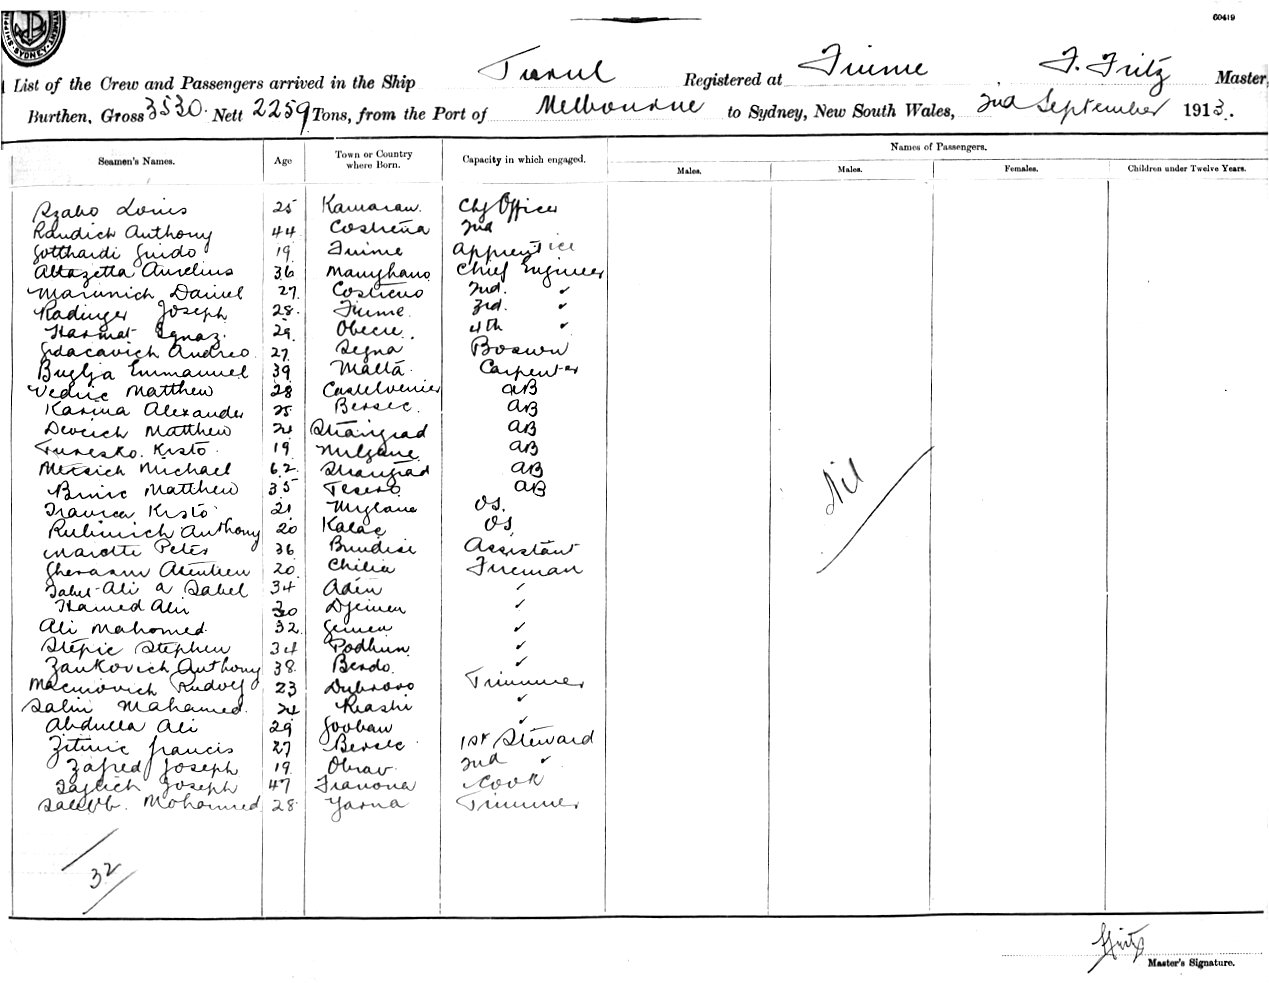 60419
List of the Crew and Passengers arrived in the Ship Tisrul Registered at Fiume, F. Fritz Master,
Burthen, Gross 3530. Nett 2259 Tons, from the Port of Melbourne to Sydney, New South Wales, 2nd September 1913.
Names of Passengers.
Seamen's Names. Age Town or Country where Born. Capacity in which engaged. Males. Males. Females. Children under Twelve Years.
Szabo Louis 25 Kamaran. Chf Officer
Randich Anthony 44 Costrena 2nd
Gotthardi Guido 19 Fiume Apprentice
Altazetta Aurelius 36 Chief Engineer
Marinich Daniel 27. Costreno 2nd. ✓
Radinger Joseph 28. Fiume 3rd. ✓
Harmat Ignaz. 29 Obecse. 4th ✓
Andreo 27 Segna Boswn
Buglja Emmanuel 39 Malta. Carpenter
Vedric Matthew 28 Castelvenier AB
Karina Alexander 25 Bersec. AB
Devcich Matthew 21 AB
Kristo 19 AB
Mersich Michael 62 AB
Brnic Matthew 35 Tesero AB
Kristo 21 OS.
Rubinich Anthony 20 OS
Marotti Peter 36 Brindisi Assistant
20 Chilia Fireman
Sahel Ali a Sahel 34 Aden ✓
Hamed Ali 30 Djemen ✓
Ali Mahomed. 32 Jemen ✓
Stepic Stephen 34 Podhum ✓
Zankovich Anthony 38. Berdo. ✓
Rudolf 23 Dubrovo Trimmer
Salin Mahamed. 24 Riashi ✓
Abdulla Ali 29 Gooban ✓
Zitinic Francis 27 Bersec 1st Steward
Zafred Joseph 19. Obrav 2nd ✓
Joseph 47 Cook
Mohamed 28. Yarna Trimmer
Nil
32
Fritz
Master's Signature.